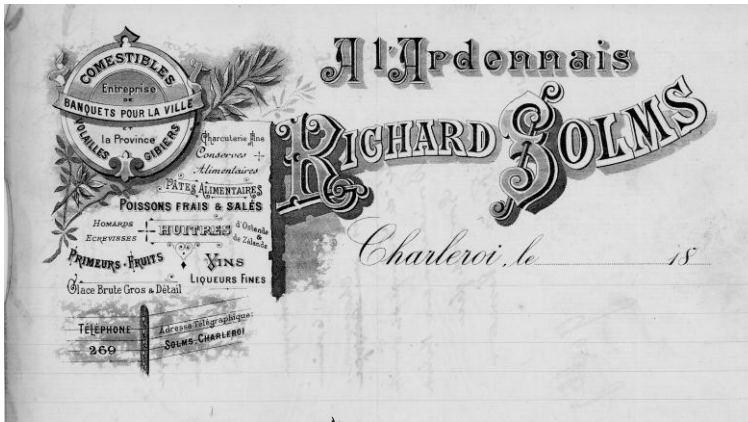 COMESTIBLES
Entreprise
DE
BANQUETS POUR LA VILLE
ET
la Province
VOLAILLES GIBIERS
A l'Ardennais
RICHARD SOLMS
Charcuterie fine
Conserves
Alimentaires
PÂTES ALIMENTAIRES
POISSONS FRAIS & SALÉS
HOMARDS
ECREVISSES
HUITRES
d'Ostende
&
de Zélande
PRIMEURS - FRUITS
VINS
LIQUEURS FINES
Glace Brute Gros & Détail
TÉLÉPHONE
269
Adresse Télégraphique:
SOLMS-CHARLEROI
Charleroi, le 18